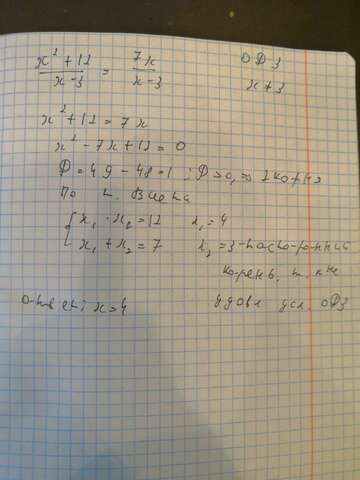 x² + 12 / x - 3 = 7x / x - 3
ОДЗ
x ≠ 3
x² + 12 = 7x
x² - 7x + 12 = 0
D = 49 - 48 = 1 ; D > 0, ⇒ 2 корня
по т. Виета
{ x₁ · x₂ = 12 x₁ = 4
x₁ + x₂ = 7 x₂ = 3 - посторонний
корень, т. к не
удовл усл. ОДЗ
ответ: x = 4